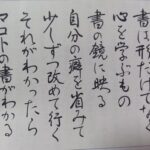 書は形だけでなく
心を学ぶもの
書の鏡に映る
自分の癖を省みて
少しずつ改めて行く
それがわかったら
マコトの書がわかる